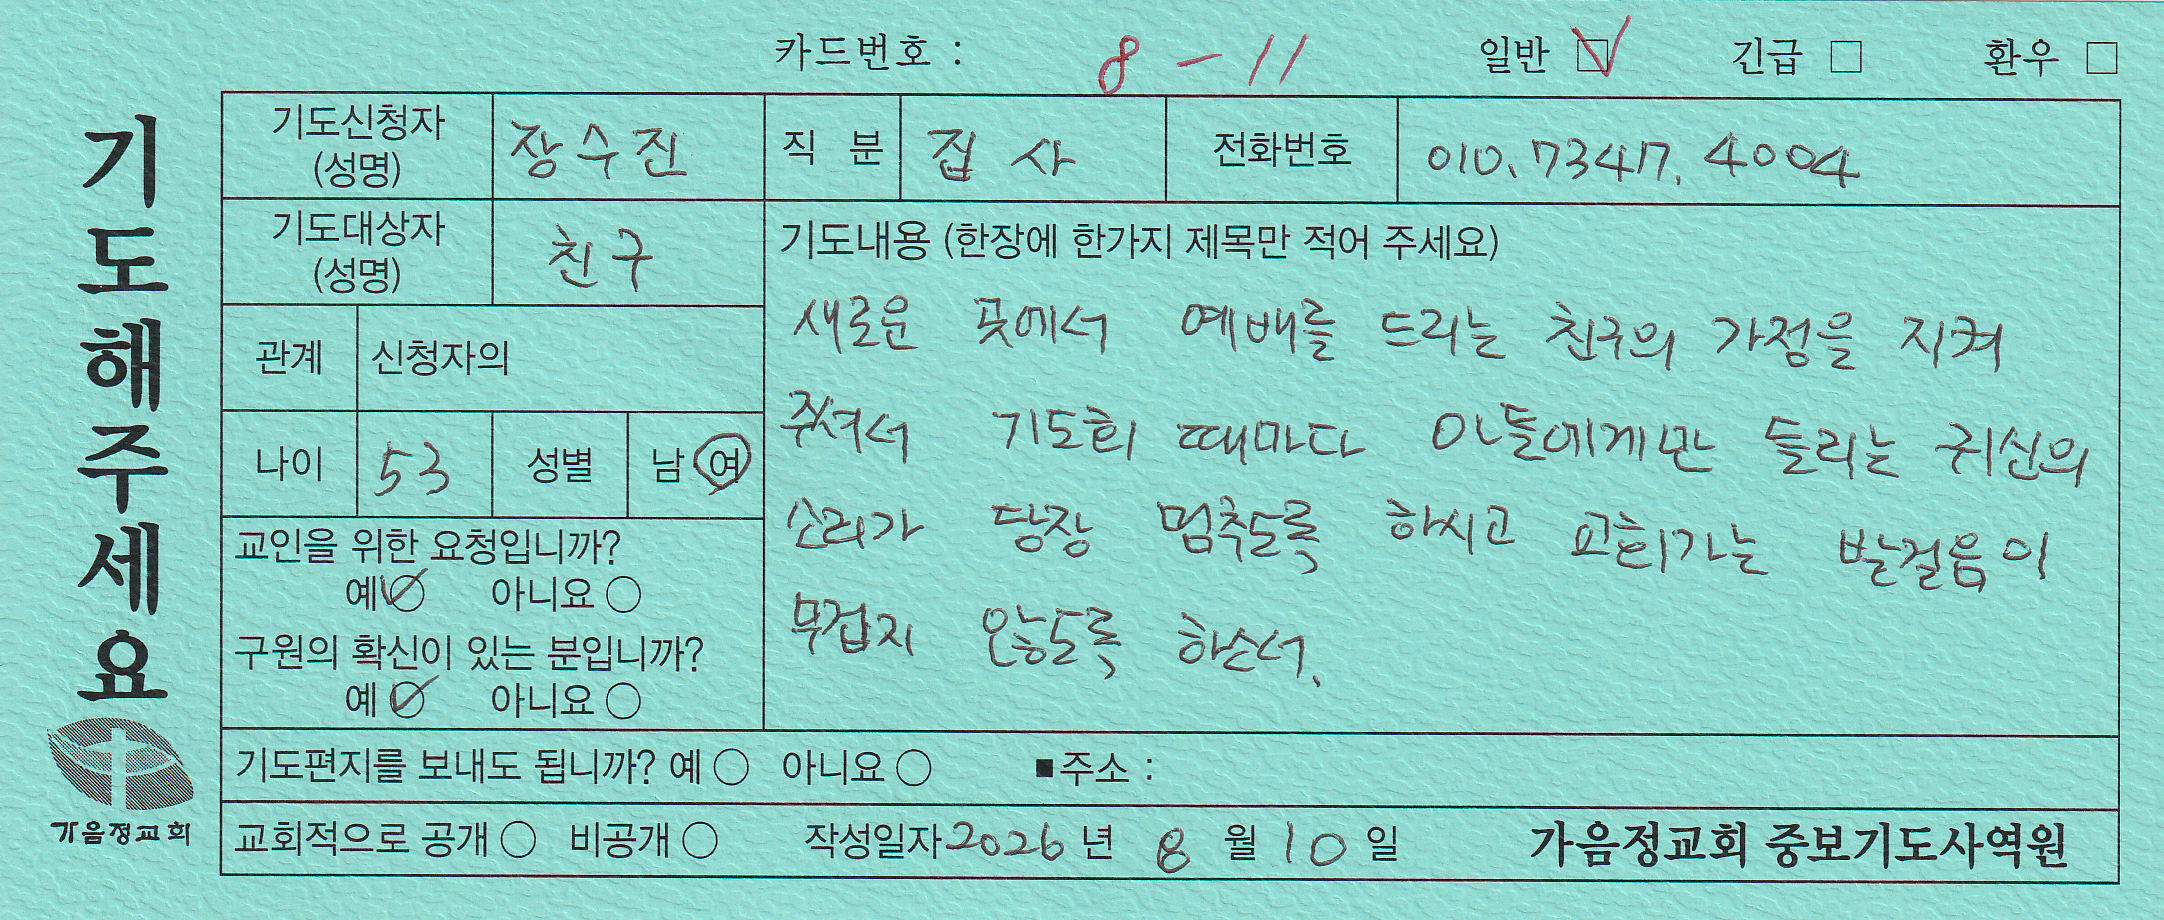 카드번호 : 8 - 11 일반 ☑ 긴급 □ 환우 □
기도해주세요
기도신청자 (성명) 장수진 직 분 집사 전화번호 010.7347.4004
기도대상자 (성명) 친구
관계 신청자의
나이 53 성별 남 여
교인을 위한 요청입니까?
예 ○ 아니요 ○
구원의 확신이 있는 분입니까?
예 ○ 아니요 ○
기도내용 (한장에 한가지 제목만 적어 주세요)
새로운 곳에서 예배를 드리는 친구의 가정을 지켜
주셔서 기도회 때마다 아들에게만 들리는 귀신의
소리가 당장 멈추도록 하시고 교회가는 발걸음이
무겁지 않도록 하소서.
기도편지를 보내도 됩니까? 예 ○ 아니요 ○ ■주소 :
가음정교회
교회적으로 공개 ○ 비공개 ○ 작성일자 2026 년 8 월 10 일 가음정교회 중보기도사역원